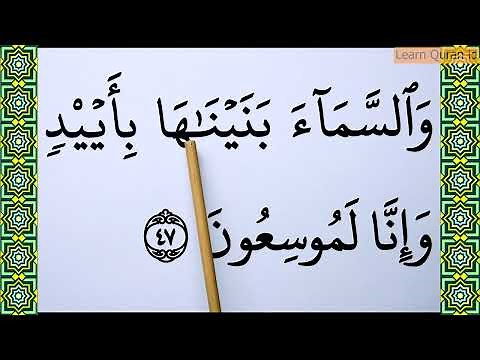 Learn Quran id
وَٱلسَّمَآءَ بَنَيْنَـٰهَا بِأَيْي۟دٍ
وَإِنَّا لَمُوسِعُونَ ٤٧